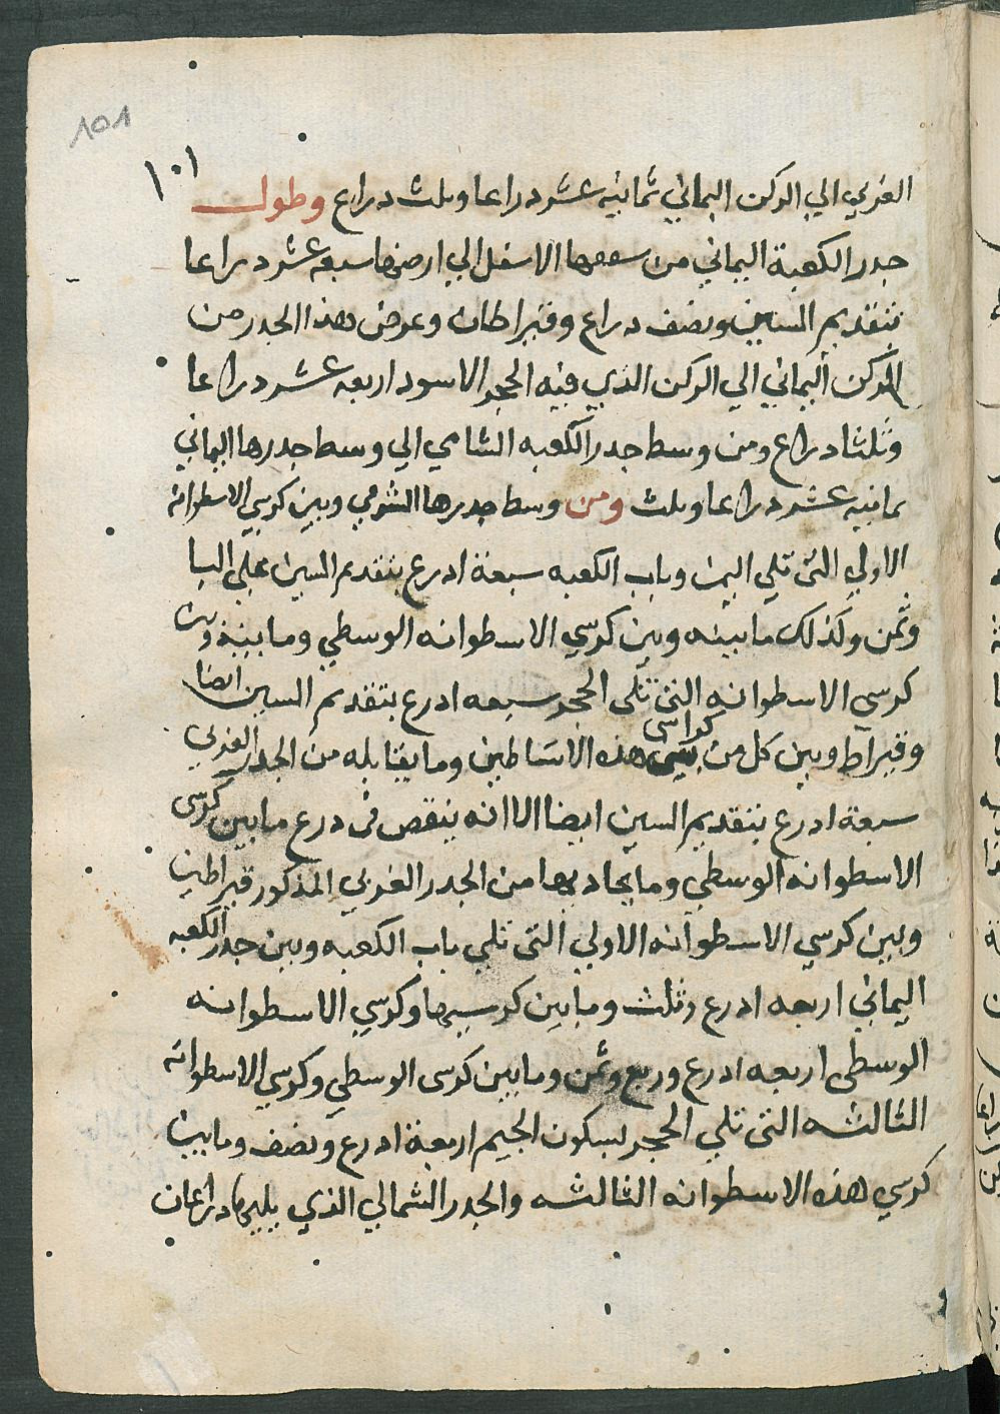 ١٥١
١٠١
الغربي الي الركن اليماني ثمانيه عشر دراعا وثلث دراع وطول
جدر الكعبة اليماني من سقفها الاسفل الي ارضها سبعه عشر دراعا
بتقديم السين ونصف دراع وقيراطان وعرض هذا الجدر من
الركن اليماني الي الركن الذي فيه الحجر الاسود اربعه عشر دراعا
وثلثا دراع ومن وسط جدر الكعبه الشامي الي وسط جدرها اليماني
ثمانيه عشر دراعا وثلث ومن وسط جدرها الشرقي وبين كرسي الاسطوانه
الاولي التى تلي اليمن وباب الكعبه سبعة ادرع بتقديم السين علي البا
وثمن وكذلك ما بينه وبين كرسي الاسطوانه الوسطي وما بينه وبين
كرسي الاسطوانه التى تلى الحجر سبعه ادرع بتقديم السين ايضا
وقيراط وبين كل من كراسى هذه الاساطين وما يقابله من الجدر الغربي
سبعة ادرع بتقديم السين ايضا الا انه ينقص فى درع ما بين كرسى
الاسطوانه الوسطي وما يحاديها من الجدر الغربي المذكور قيراطين
وبين كرسي الاسطوانه الاولي التى تلي باب الكعبه وبين جدر الكعبه
اليماني اربعه ادرع وثلث وما بين كرسيها وكرسي الاسطوانه
الوسطى اربعه ادرع وربع وثمن وما بين كرسى الوسطي وكرسي الاسطوانه
الثالثه التى تلي الحجر بسكون الجيم اربعة ادرع ونصف وما بين
كرسي هذه الاسطوانه الثالثه والجدر الشمالي الذي يليها دراعان